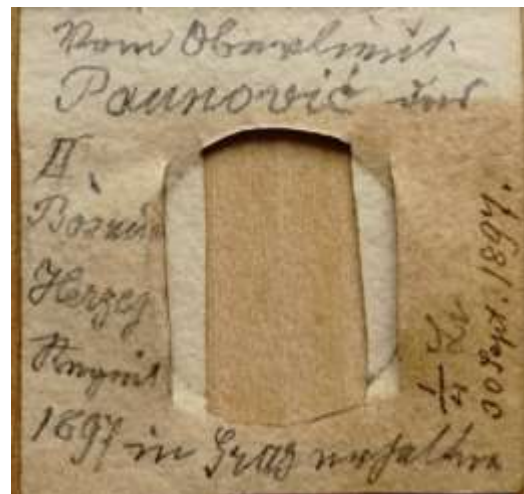 Vom Oberlieut.
Paunović des
II.
Bosni
Herzeg
Regmt
1897 in Graz erhalten
1/4
30 Sept. 1897.